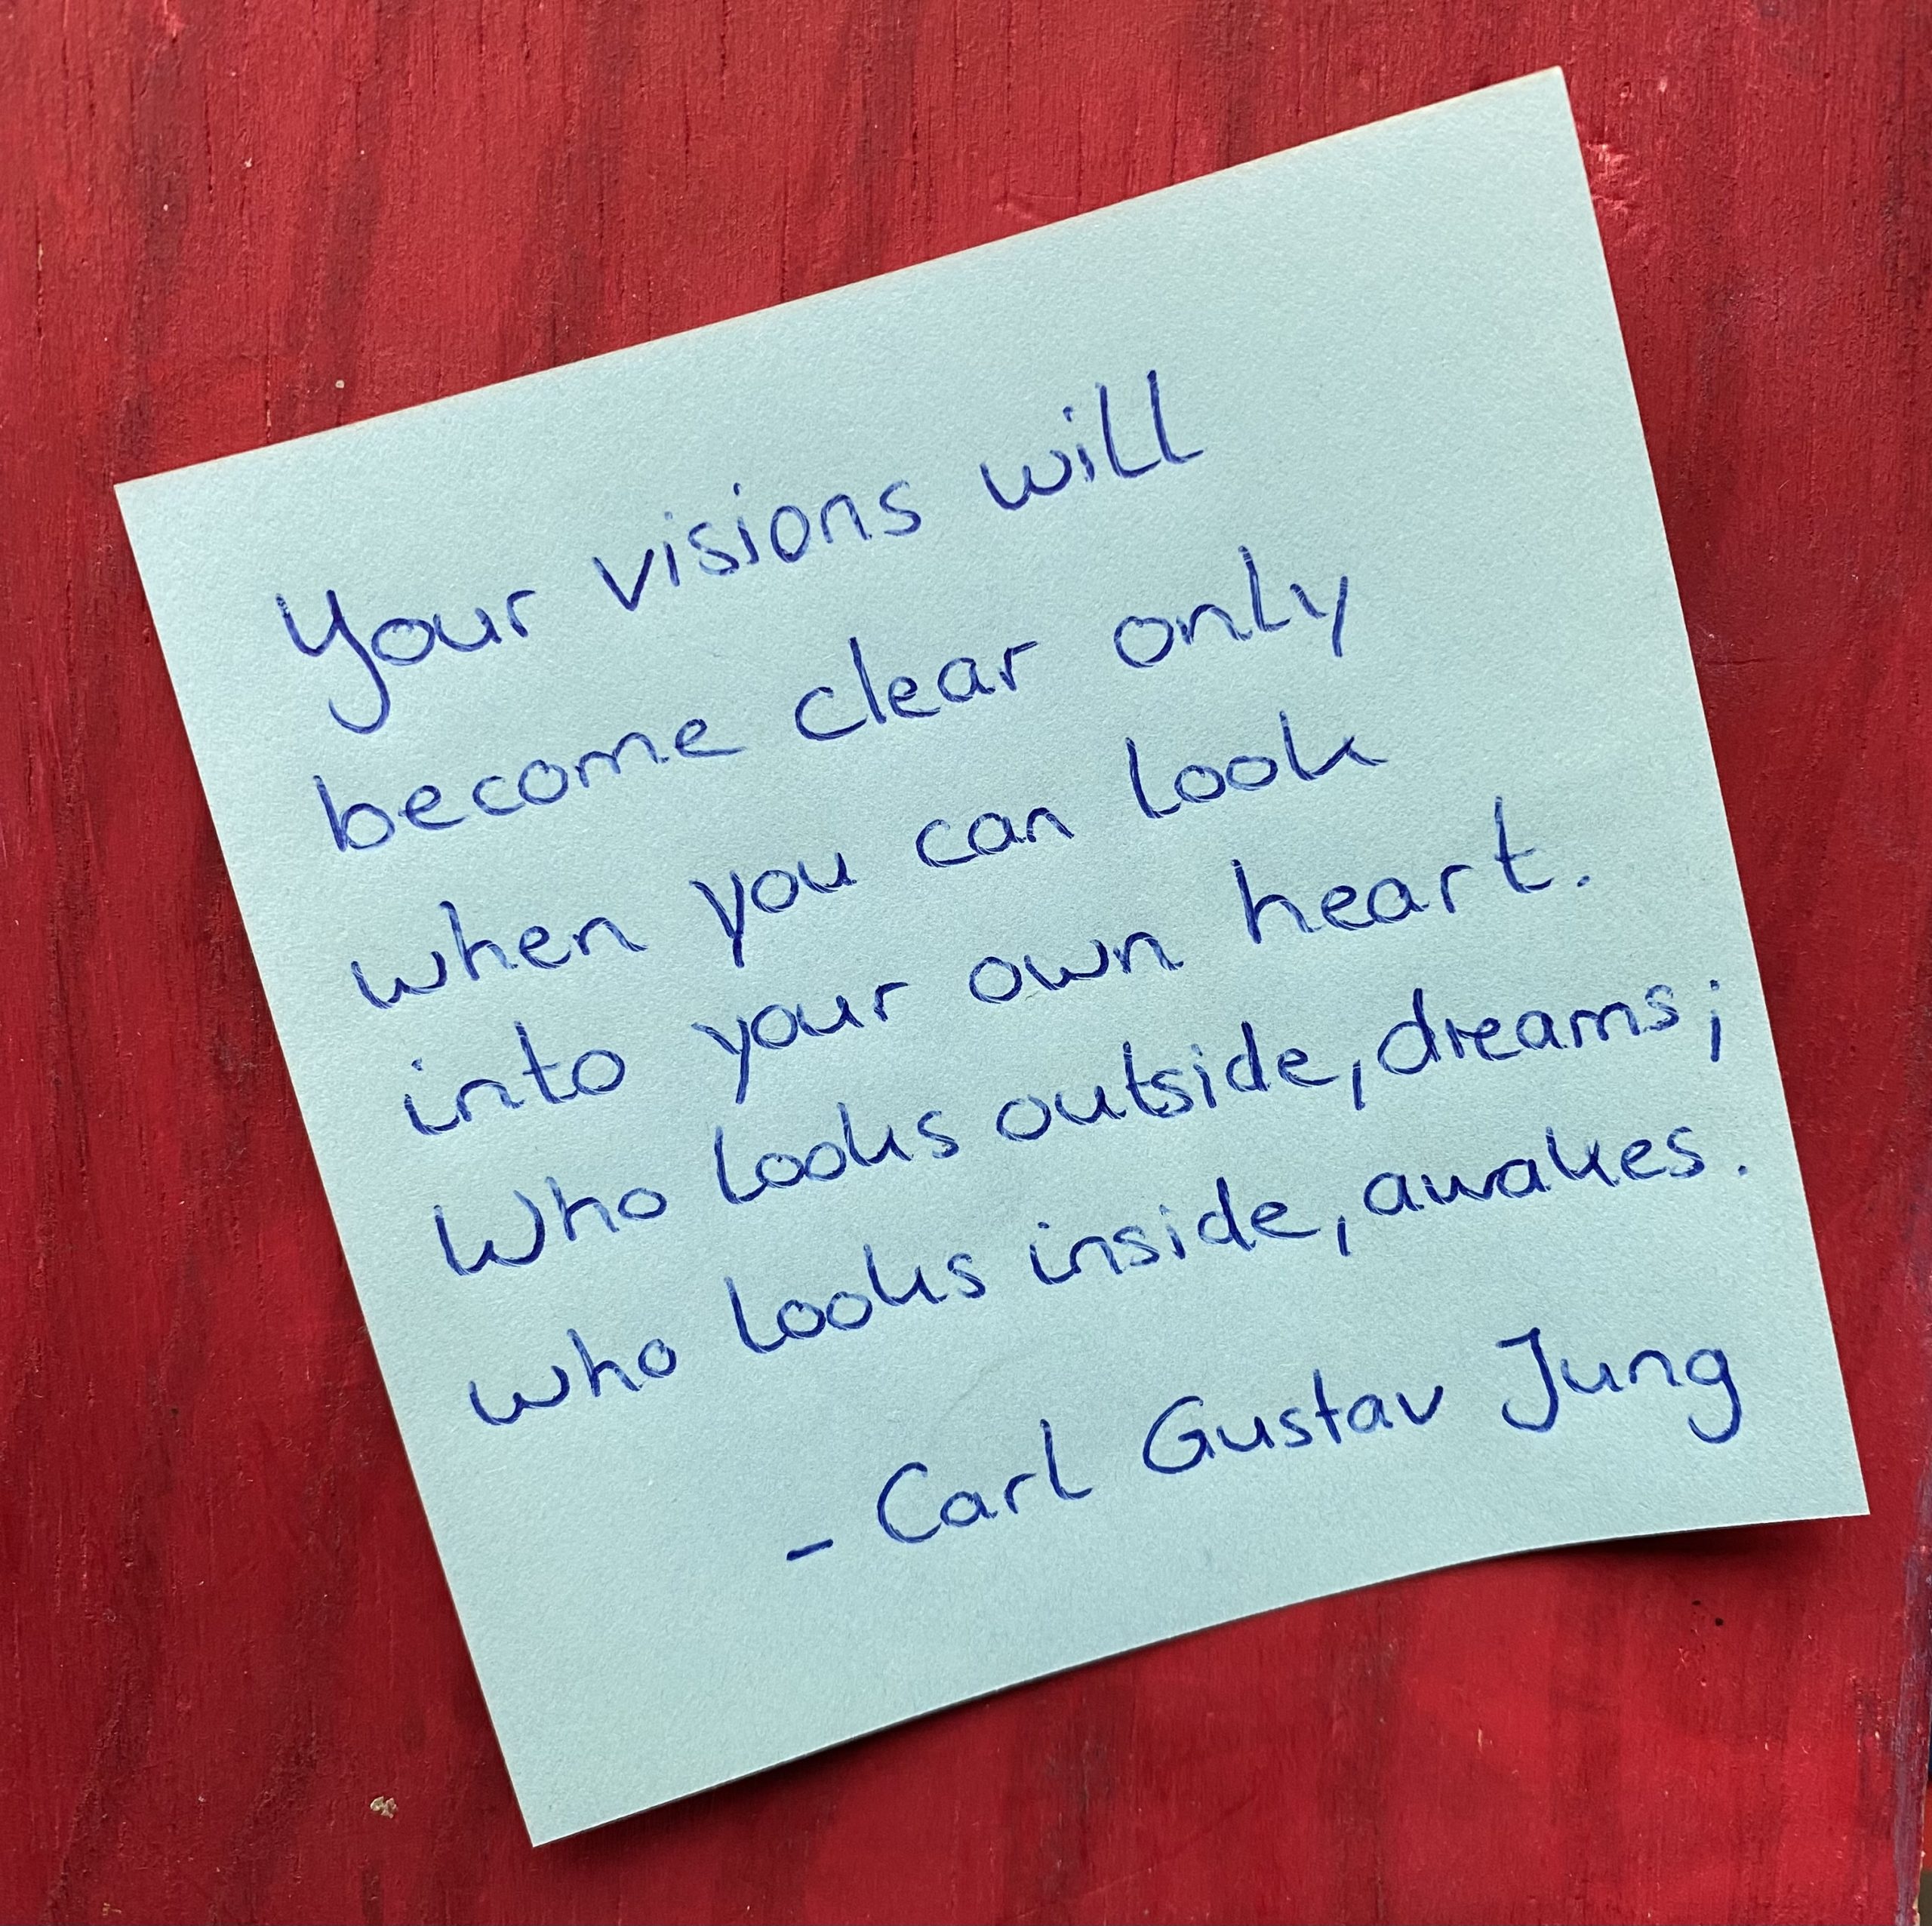 Your visions will
become clear only
when you can look
into your own heart.
Who looks outside, dreams;
who looks inside, awakes.
- Carl Gustav Jung